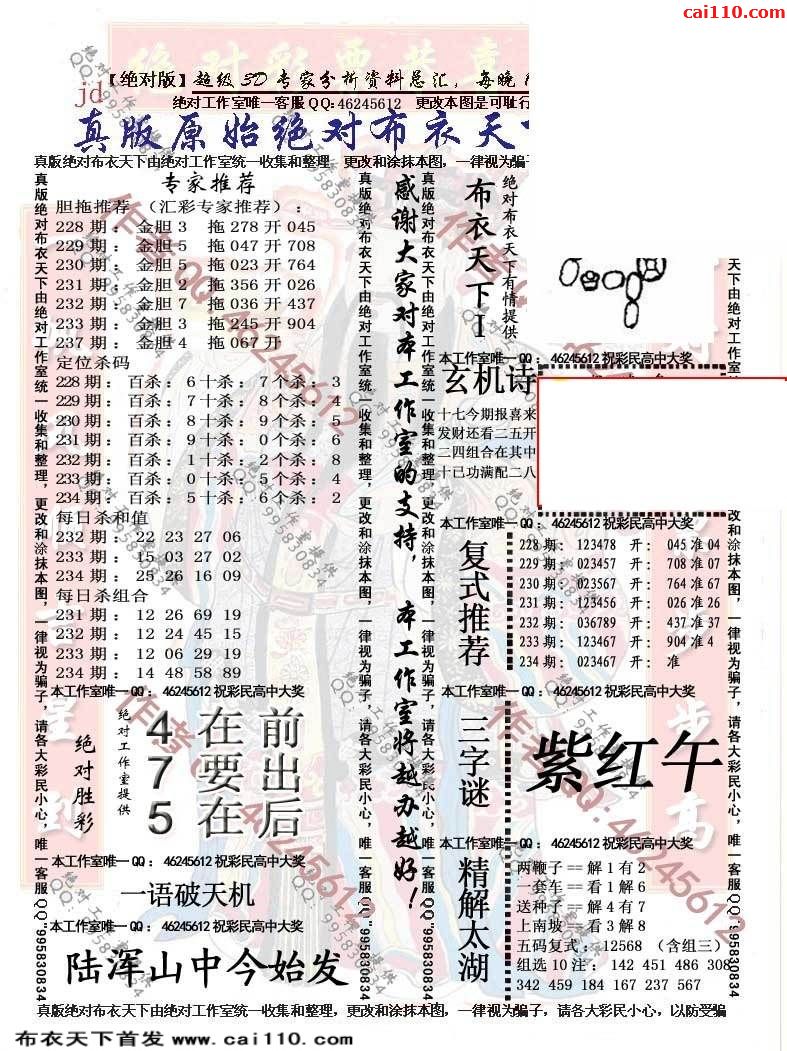 cai110.com
【绝对版】超级3D专家分析资料总汇，每晚
jd
绝对工作室唯一客服QQ:46245612 更改本图是可耻行
真版原始绝对布衣天
真版绝对布衣天下由绝对工作室统一收集和整理 更改和涂抹本图，一律视为骗
真版绝对布衣天下由绝对工作室统一收集和整理，更改和涂抹本图，一律视为骗子，请各大彩民小心，唯一客服QQ"995830834
专家推荐
胆拖推荐 （汇彩专家推荐）：
228期： 金胆3 拖278开045
229期： 金胆5 拖047开708
230期： 金胆5 拖023开764
231期： 金胆2 拖356开026
232期： 金胆7 拖036开437
233期： 金胆3 拖245开904
237期： 金胆4 拖067开
定位杀码
228期： 百杀：6十杀：7个杀：3
229期： 百杀：7十杀：8个杀：4
230期： 百杀：8十杀：9个杀：5
231期： 百杀：9十杀：0个杀：6
232期： 百杀：1十杀：2个杀：8
233期： 百杀：0十杀：5个杀：4
234期： 百杀：5十杀：6个杀：2
每日杀和值
232期： 22 23 27 06
233期： 15 03 27 02
234期： 25 26 16 09
每日杀组合
231期： 12 26 69 19
232期： 12 24 45 15
233期： 12 06 29 19
234期： 14 48 58 89
本工作室唯一QQ：46245612祝彩民高中大奖
绝对胜彩
绝对工作室提供
4在前
7要出
5在后
本工作室唯一QQ：46245612祝彩民高中大奖
一语破天机
本工作室唯一QQ：46245612祝彩民高中大奖
陆浑山中今始发
真版绝对布衣天下由绝对工作室统一收集和整理，更改和涂抹本图，一律视为骗子，请各大彩民小心，唯一客服QQ"995830834
感谢大家对本工作室的支持，本工作室将越办越好！
真版绝对布衣天下由绝对工作室统一收集和整理，更改和涂抹本图，一律视为骗子，请各大彩民小心，唯一客服QQ"995830834
布衣天下I
绝对布衣天下有情提供
本工作室唯一QQ：46245612祝彩民高中大奖
玄机诗
十七今期报喜来
发财还看二五开
二四组合在其中
十已功满配二八
本工作室唯一QQ：46245612祝彩民高中大奖
复式推荐
228期： 123478 开： 045准04
229期： 023457 开： 708准07
230期： 023567 开： 764准67
231期： 123456 开： 026准26
232期： 036789 开： 437准37
233期： 123467 开： 904准4
234期： 023467 开： 准
本工作室唯一QQ：46245612祝彩民高中大奖
三字谜
紫红午
本工作室唯一QQ：46245612祝彩民高中大奖
精解太湖
两鞭子==解1有2
一套车==看1解6
送种子==解4有7
上南坡==看3解8
五码复式：12568 （含组三）
组选10注： 142 451 486 308
342 459 184 167 237 567
天下由绝对工作室统一
改和涂抹本图，一律视为骗子，请各大彩民小心，唯一客服QQ"995830834
真版绝对布衣天下由绝对工作室统一收集和整理，更改和涂抹本图，一律视为骗子，请各大彩民小心，以防受骗
布衣天下首发 www.cai110.com
作者QQ:46245612
绝对工作室提供
QQ:995830834